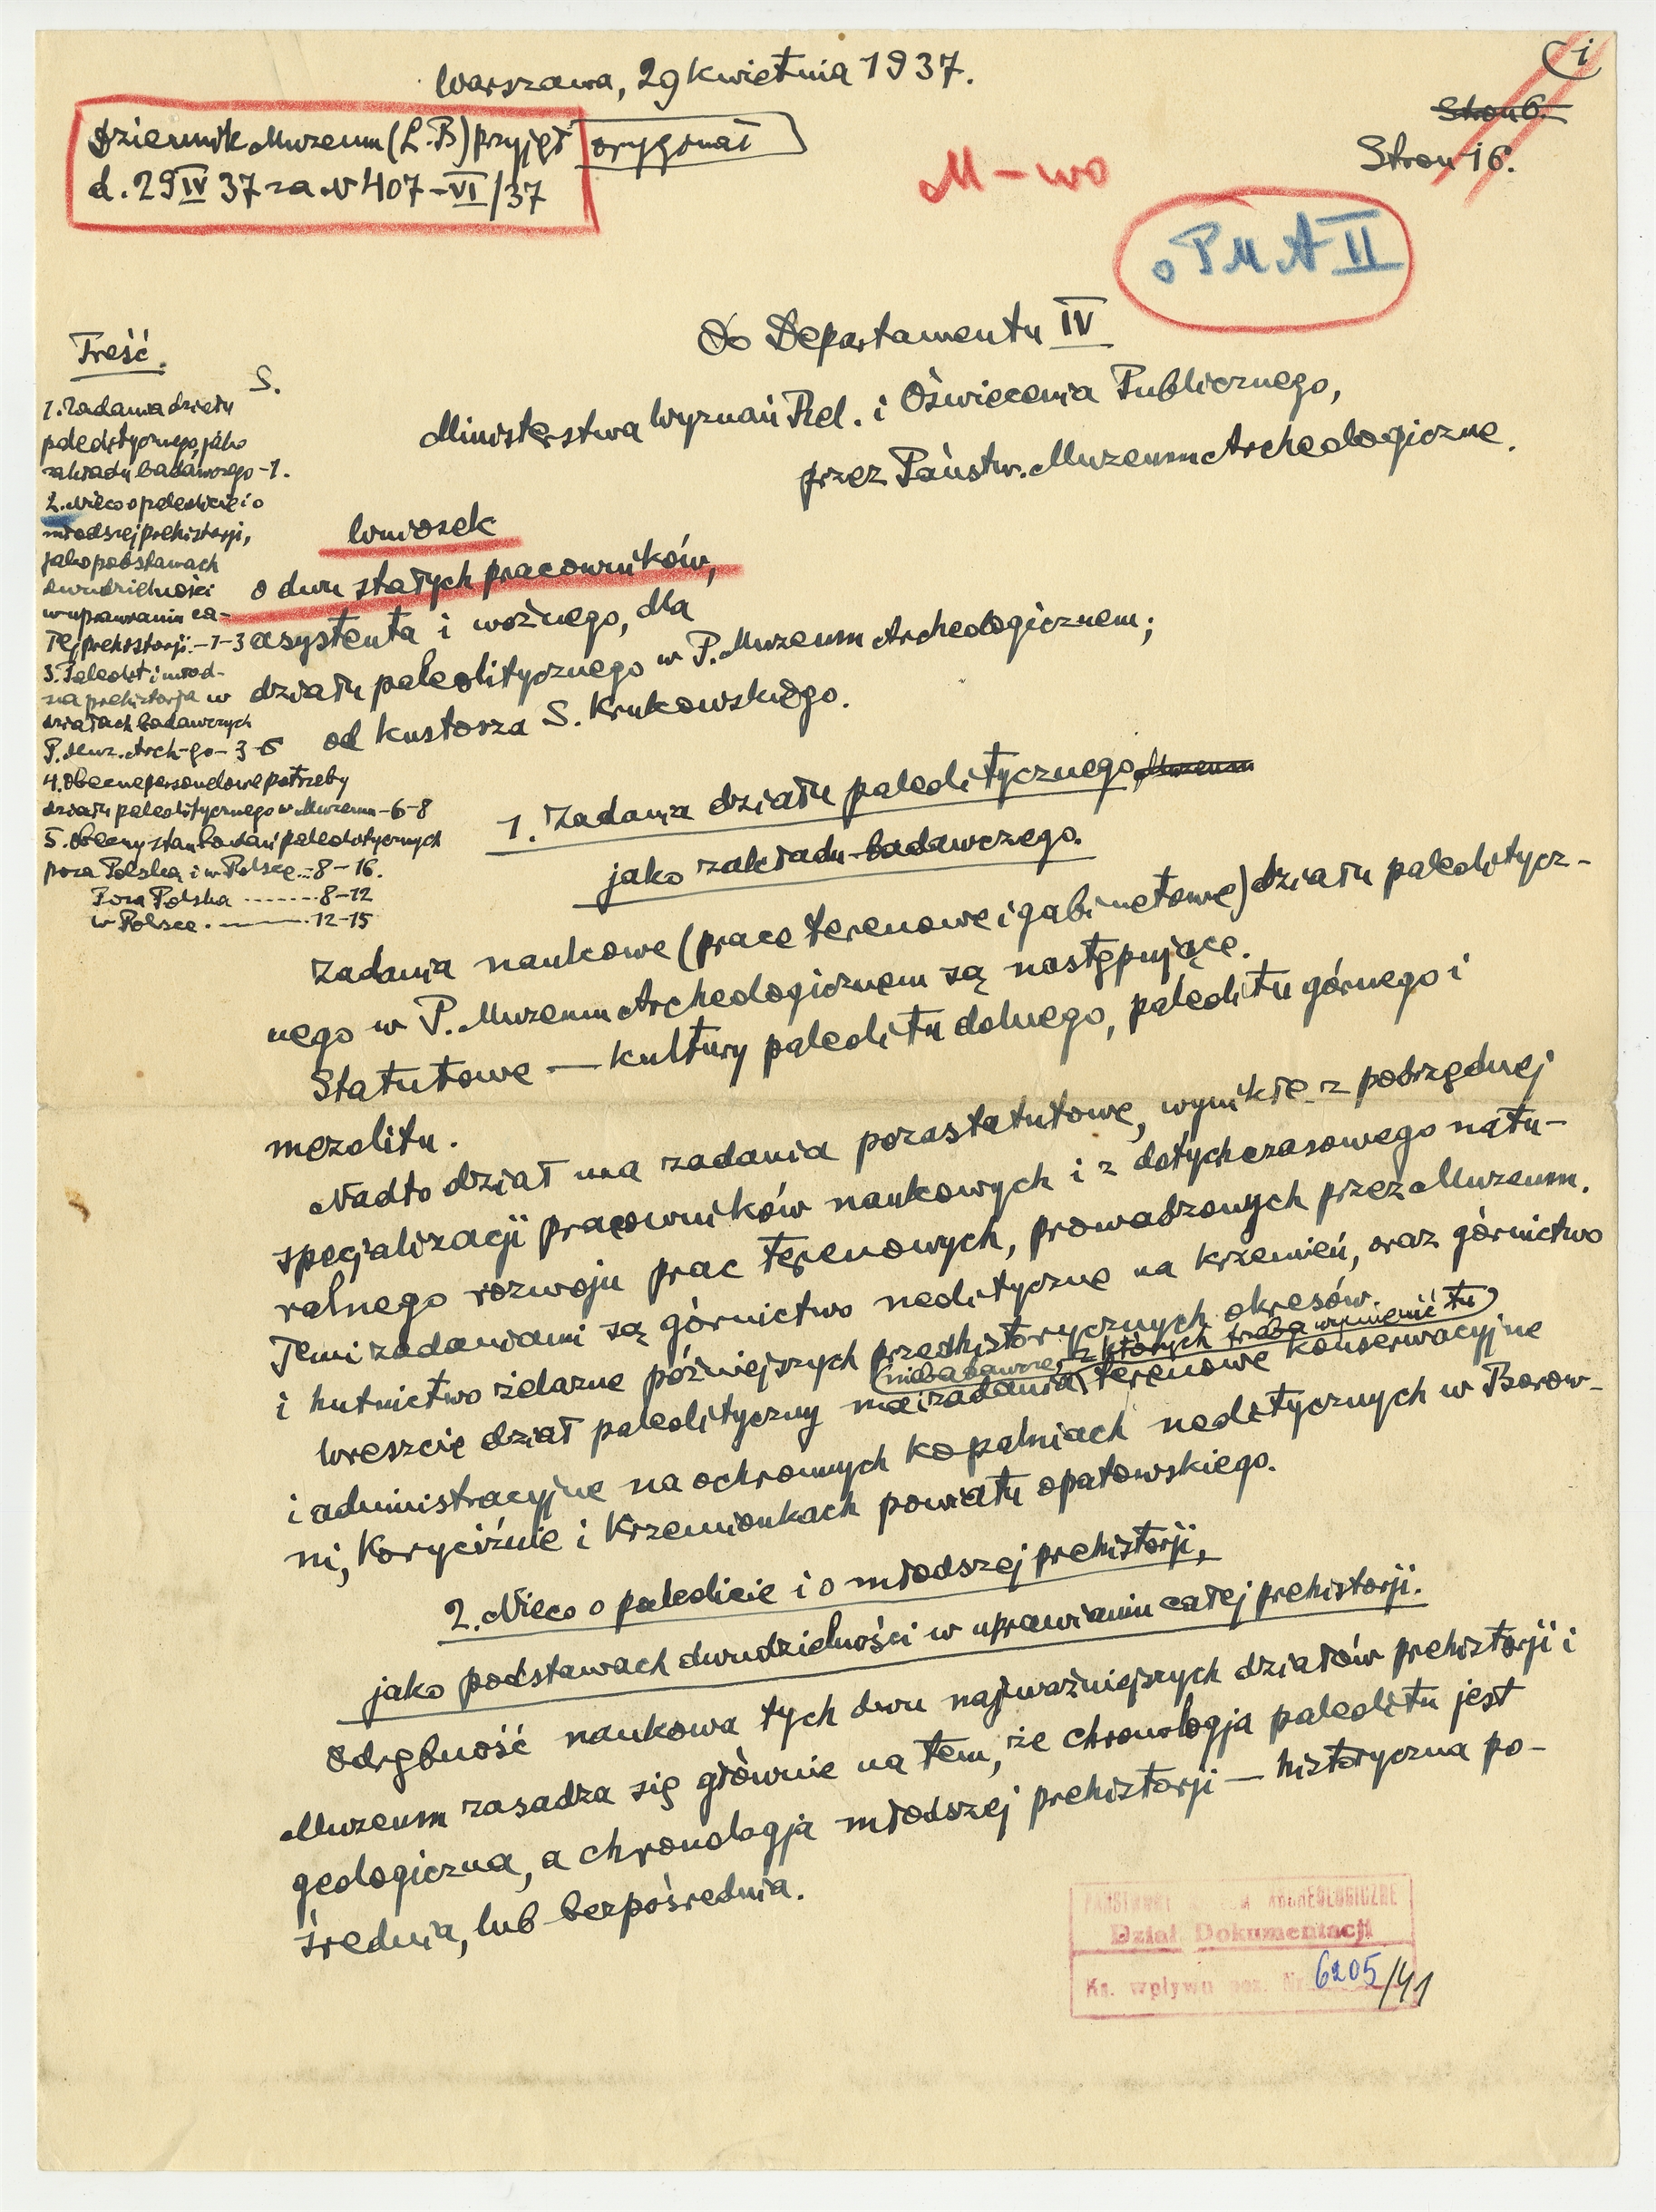 1
Warszawa, 29 kwietnia 1937.
Stron 6.
Stron 16.
Dziennik Muzeum (L.B) przyjął oryginał
d. 29 IV 37 za N 407-VI/37
M-wo
o PMA II
Do Departamentu IV
Ministerstwa Wyznań Rel. i Oświecenia Publicznego,
przez Państw. Muzeum Archeologiczne.
Treść.
S.
1. Zadania działu
paleolitycznego, jako
zakładu badawczego -1.
2. Nieco o paleolicie i o
młodszej prehistorji,
jako podstawach
dwudzielności
w uprawianiu ca-
łej prehistorji. -1-3
3. Paleolit i młod-
sza prehistorja w
działach badawczych
P. Muz. Arch-go - 3-6
4. Obecne personelowe potrzeby
działu paleolitycznego w Muzeum -6-8
5. Obecny stan badań paleolitycznych
poza Polską i w Polsce. -8-16.
Poza Polską ------- 8-12
w Polsce. ——— 12-15
Wniosek
o dwu stałych pracowników,
asystenta i woźnego, dla
działu paleolitycznego w P. Muzeum Archeologicznem;
od kustosza S. Krukowskiego.
1. Zadania działu paleolitycznego, Muzeum
jako zakładu badawczego.
Zadania naukowe (prace terenowe i gabinetowe) działu paleolitycz-
nego w P. Muzeum Archeologicznem są następujące.
Statutowe — kultury paleolitu dolnego, paleolitu górnego i
mezolitu.
Nadto dział ma zadania pozastatutowe, wynikłe z podrzędnej
specjalizacji pracowników naukowych i z dotychczasowego natu-
ralnego rozwoju prac terenowych, prowadzonych przez Muzeum.
Temi zadaniami są górnictwo neolityczne na krzemień, oraz górnictwo
i hutnictwo żelazne późniejszych przedhistorycznych okresów.
(niebadawcze, z których trzeba wymienić tu)
Wreszcie dział paleolityczny ma i zadania terenowe konserwacyjne
i administracyjne na ochronnych kopalniach neolitycznych w Borow-
ni, Koryciźnie i Krzemionkach powiatu opatowskiego.
2. Nieco o paleolicie i o młodszej prehistorji,
jako podstawach dwudzielności w uprawianiu całej prehistorji.
Odrębność naukowa tych dwu najważniejszych działów prehistorji i
Muzeum zasadza się głównie na tem, że chronologja paleolitu jest
geologiczna, a chronologja młodszej prehistorji — historyczna po-
średnia, lub bezpośrednia.
PAŃSTWOWE MUZEUM ARCHEOLOGICZNE
Dział Dokumentacji
Ks. wpływu poz. Nr. 6205/41